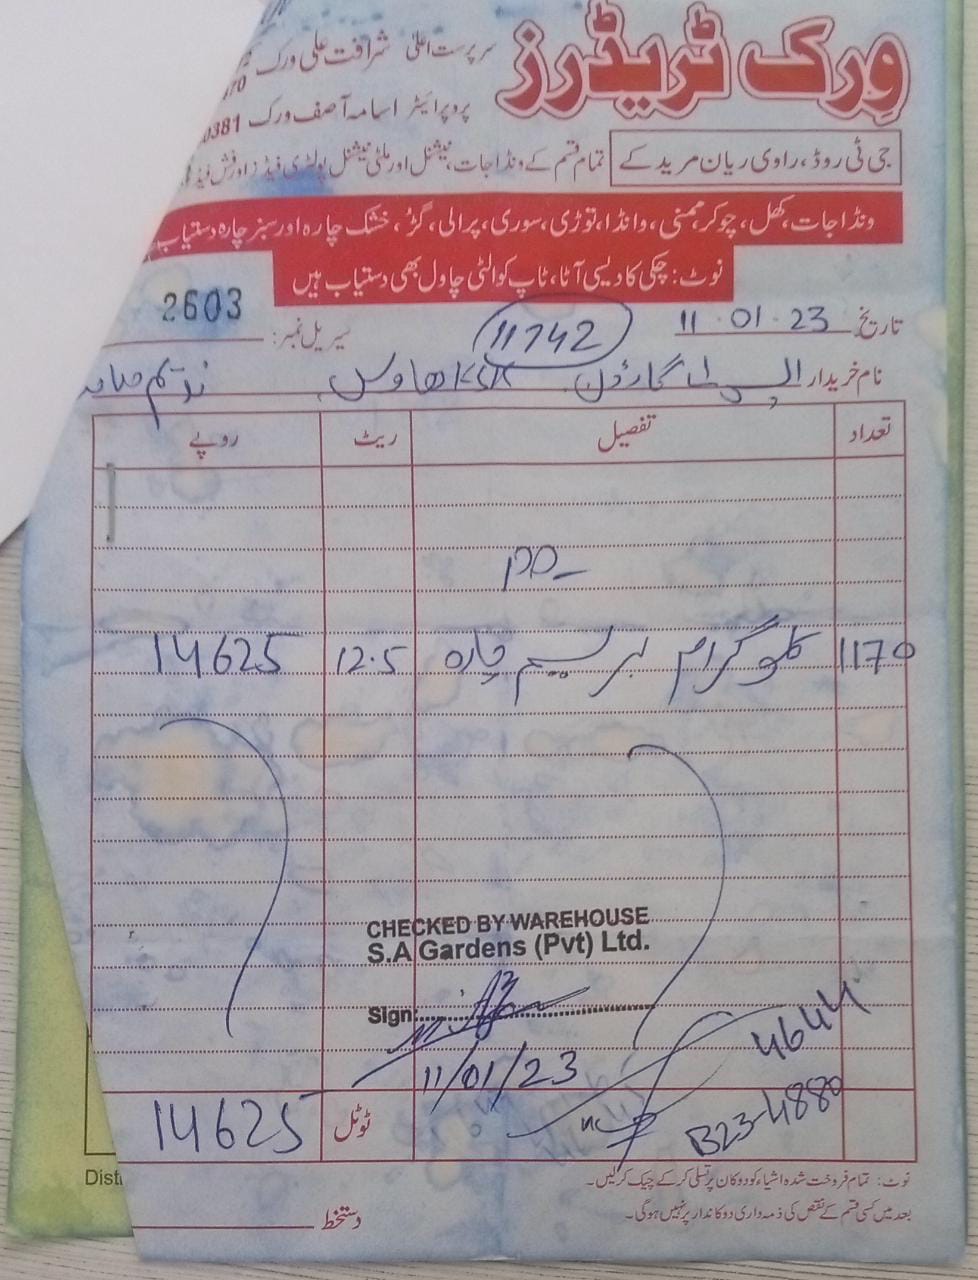 ورک ٹریڈرز
سرپرست اعلیٰ شرافت علی ورک
پروپرائیٹر اسامہ آصف ورک 0381
جی ٹی روڈ، راوی ریان مریدکے
تمام قسم کے ونڈا جات، نیشنل اور ملٹی نیشنل پولٹری فیڈز اور فش فیڈ
ونڈا جات، کھل، چوکر، ممنی، وانڈا، توڑی، سوری، پرالی، گڑ، خشک چارہ اور سبز چارہ دستیاب
نوٹ: چکی کا دیسی آٹا، ٹاپ کوالٹی چاول بھی دستیاب ہیں
تاریخ 11-01-23
11742
سیریل نمبر: 2603
نام خریدار ایس اے گارڈن KSK ھاوس
تعداد تفصیل ریٹ روپے
1170 کلو گرام برسیم چارہ 12.5 14625
CHECKED BY WAREHOUSE
S.A Gardens (Pvt) Ltd.
Sign:
11/01/23
4644
B23-4880
ٹوٹل 14625
نوٹ: تمام فروخت شدہ اشیاء کو دوکان پر تسلی کر کے چیک کر لیں۔
بعد میں کسی قسم کے نقص کی ذمہ داری دوکاندار پر نہیں ہوگی۔
دستخط